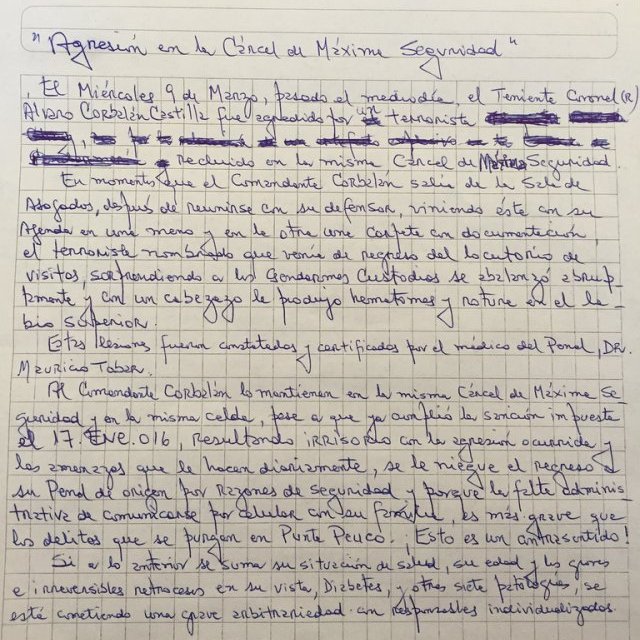 "Agresión en la Cárcel de Máxima Seguridad"
El Miércoles 9 de Marzo, pasado el mediodía, el Teniente Coronel (R)
Alvaro Corbalán Castilla fue agredido por un terrorista
recluido en la misma Cárcel de Máxima Seguridad.
En momentos que el Comandante Corbalán salía de la Sala de
Abogados, después de reunirse con su defensor, viniendo éste con su
Agenda en una mano y en la otra una carpeta con documentación,
el terrorista nombrado que venía de regreso del locutorio de
visitas, sorprendiendo a los Gendarmes Custodios se abalanzó abrup-
tamente y con un cabezazo le produjo hematomas y rotura en el la-
bio superior.
Estas lesiones fueron constatadas y certificadas por el médico del Penal, DR.
Mauricio Tobar.
Al Comandante Corbalán lo mantienen en la misma Cárcel de Máxima Se-
guridad y en la misma celda, pese a que ya cumplió la sanción impuesta
el 17.ENE.016, resultando irrisorio con la agresión ocurrida y
las amenazas que le hacen diariamente, se le niegue el regreso a
su Penal de origen por razones de seguridad y porque la falta adminis-
trativa de comunicarse por celular con su familia, es más grave que
los delitos que se purgan en Punta Peuco. ¡Esto es un contrasentido!
Si a lo anterior se suma su situación de salud, su edad y los graves
e irreversibles retrocesos en su vista, Diabetes, y otras siete patologías, se
está cometiendo una grave arbitrariedad con responsables individualizados.